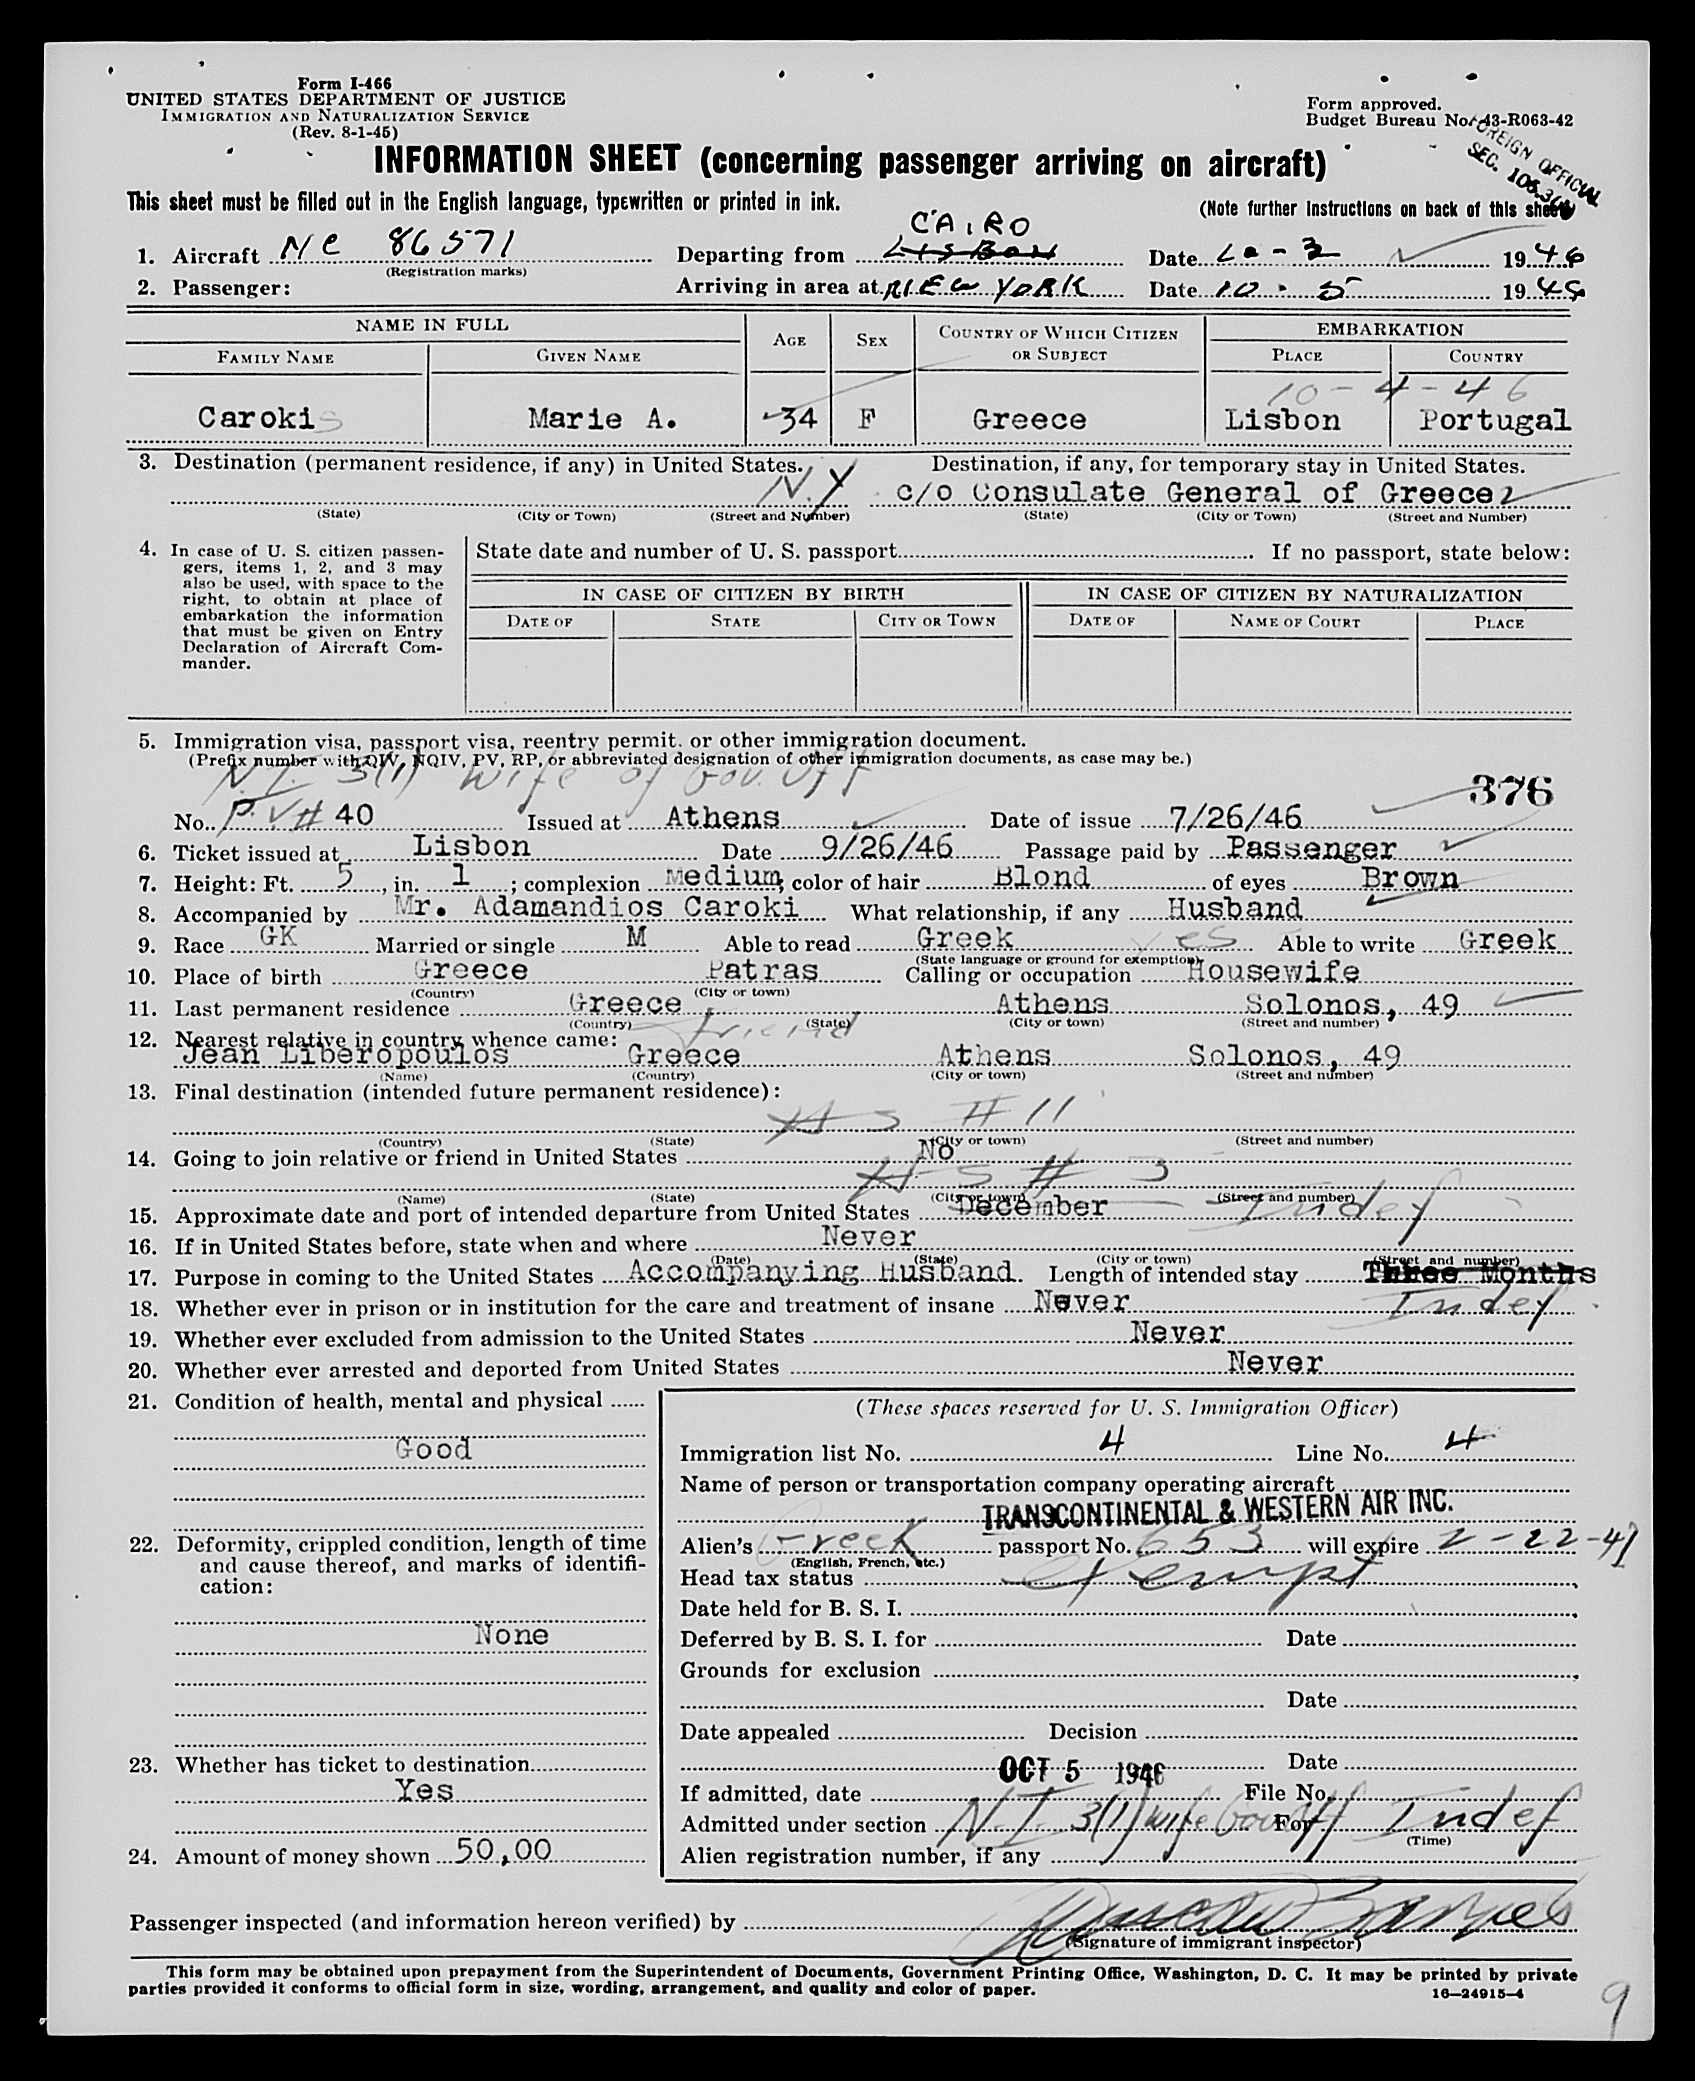 Form I-466
UNITED STATES DEPARTMENT OF JUSTICE
IMMIGRATION AND NATURALIZATION SERVICE
(Rev. 8-1-45)
Form approved.
Budget Bureau No. 43-R063-42
FOREIGN OFFICIAL
SEC.
INFORMATION SHEET (concerning passenger arriving on aircraft)
This sheet must be filled out in the English language, typewritten or printed in ink.
(Note further instructions on back of this sheet)
CAIRO
1. Aircraft NC 86571 Departing from LISBON Date 10-3 1946
(Registration marks)
2. Passenger: Arriving in area at NEW YORK Date 10-5 1946
NAME IN FULL AGE SEX COUNTRY OF WHICH CITIZEN OR SUBJECT EMBARKATION
FAMILY NAME GIVEN NAME PLACE COUNTRY
10-4-46
Carokis Marie A. 34 F Greece Lisbon Portugal
3. Destination (permanent residence, if any) in United States. Destination, if any, for temporary stay in United States.
N.Y c/o Consulate General of Greece
(State) (City or Town) (Street and Number) (State) (City or Town) (Street and Number)
4. In case of U. S. citizen passen-
gers, items 1, 2, and 3 may
also be used, with space to the
right, to obtain at place of
embarkation the information
that must be given on Entry
Declaration of Aircraft Com-
mander.
State date and number of U. S. passport If no passport, state below:
IN CASE OF CITIZEN BY BIRTH IN CASE OF CITIZEN BY NATURALIZATION
DATE OF STATE CITY OR TOWN DATE OF NAME OF COURT PLACE
5. Immigration visa, passport visa, reentry permit, or other immigration document.
(Prefix number with QIV, NQIV, PV, RP, or abbreviated designation of other immigration documents, as case may be.)
N.I. 3(1) Wife of Gov. Off
376
No. P.V# 40 Issued at Athens Date of issue 7/26/46
6. Ticket issued at Lisbon Date 9/26/46 Passage paid by Passenger
7. Height: Ft. 5, in. 1; complexion Medium, color of hair Blond of eyes Brown
8. Accompanied by Mr. Adamandios Caroki What relationship, if any Husband
9. Race GK Married or single M Able to read Greek yes Able to write Greek
(State language or ground for exemption)
10. Place of birth Greece Patras Calling or occupation Housewife
(Country) (City or town)
11. Last permanent residence Greece Athens Solonos, 49
(Country) (State) (City or town) (Street and number)
12. Nearest relative in country whence came: friend
Jean Liberopoulos Greece Athens Solonos, 49
(Name) (Country) (City or town) (Street and number)
13. Final destination (intended future permanent residence):
# 11
(Country) (State) (City or town) (Street and number)
14. Going to join relative or friend in United States No
# 3
(Name) (State) (City or town) (Street and number)
15. Approximate date and port of intended departure from United States December Indef
16. If in United States before, state when and where Never
(Date) (State) (City or town) (Street and number)
17. Purpose in coming to the United States Accompanying Husband Length of intended stay Three Months
18. Whether ever in prison or in institution for the care and treatment of insane Never Indef
19. Whether ever excluded from admission to the United States Never
20. Whether ever arrested and deported from United States Never
21. Condition of health, mental and physical
Good
22. Deformity, crippled condition, length of time
and cause thereof, and marks of identifi-
cation:
None
23. Whether has ticket to destination
Yes
24. Amount of money shown 50,00
(These spaces reserved for U. S. Immigration Officer)
Immigration list No. 4 Line No. 4
Name of person or transportation company operating aircraft
TRANSCONTINENTAL & WESTERN AIR INC.
Alien's Greek passport No. 653 will expire 2-22-47
(English, French, etc.)
Head tax status exempt
Date held for B. S. I.
Deferred by B. S. I. for Date
Grounds for exclusion
Date
Date appealed Decision
Date
OCT 5 1946
If admitted, date File No.
Admitted under section N.I. 3(1) wife Gov Off For Indef
(Time)
Alien registration number, if any
Passenger inspected (and information hereon verified) by
(Signature of immigrant inspector)
This form may be obtained upon prepayment from the Superintendent of Documents, Government Printing Office, Washington, D. C. It may be printed by private
parties provided it conforms to official form in size, wording, arrangement, and quality and color of paper.
16—24915-4
9